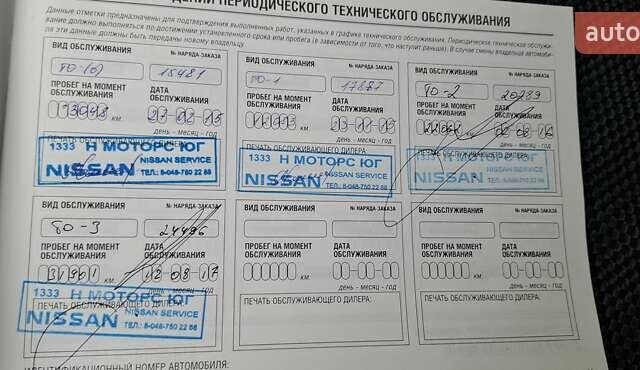 ПЕРИОДИЧЕСКОГО ТЕХНИЧЕСКОГО ОБСЛУЖИВАНИЯ
auto
Данные отметки предназначены для подтверждения выполненных работ, указанных в графике технического обслуживания. Периодическое технические обслужи-
вание должно выполняться по достижении установленного срока или пробега (в зависимости от того, что наступит раньше). В случае смены владельца автомоби-
ля эти данные должны быть переданы новому владельцу.
ВИД ОБСЛУЖИВАНИЯ № НАРЯДА-ЗАКАЗА
15481
ПРОБЕГ НА МОМЕНТ ОБСЛУЖИВАНИЯ ДАТА ОБСЛУЖИВАНИЯ
КМ
день - месяц - год
ПЕЧАТЬ ОБСЛУЖИВАЮЩЕГО ДИЛЕРА
1333 Н МОТОРС ЮГ
NISSAN NISSAN SERVICE
ТЕЛ.: 8-048-750 22 88
ВИД ОБСЛУЖИВАНИЯ № НАРЯДА-ЗАКАЗА
ТО-1
ПРОБЕГ НА МОМЕНТ ОБСЛУЖИВАНИЯ ДАТА ОБСЛУЖИВАНИЯ
КМ
день - месяц - год
ПЕЧАТЬ ОБСЛУЖИВАЮЩЕГО ДИЛЕРА
1333 Н МОТОРС ЮГ
NISSAN NISSAN SERVICE
ТЕЛ.: 8-048-750 22 88
ВИД ОБСЛУЖИВАНИЯ № НАРЯДА-ЗАКАЗА
ТО-2 20289
ПРОБЕГ НА МОМЕНТ ОБСЛУЖИВАНИЯ ДАТА ОБСЛУЖИВАНИЯ
день - месяц - год
1333 Н МОТОРС ЮГ
NISSAN NISSAN SERVICE
ВИД ОБСЛУЖИВАНИЯ № НАРЯДА-ЗАКАЗА
ТО-3 24496
ПРОБЕГ НА МОМЕНТ ОБСЛУЖИВАНИЯ ДАТА ОБСЛУЖИВАНИЯ
КМ 12 08 17
день - месяц - год
ПЕЧАТЬ ОБСЛУЖИВАЮЩЕГО ДИЛЕРА
1333 Н МОТОРС ЮГ
NISSAN NISSAN SERVICE
ТЕЛ.: 8-048-750 22 88
ВИД ОБСЛУЖИВАНИЯ № НАРЯДА-ЗАКАЗА
ПРОБЕГ НА МОМЕНТ ОБСЛУЖИВАНИЯ ДАТА ОБСЛУЖИВАНИЯ
КМ
день - месяц - год
ПЕЧАТЬ ОБСЛУЖИВАЮЩЕГО ДИЛЕРА:
ВИД ОБСЛУЖИВАНИЯ № НАРЯДА-ЗАКАЗА
ПРОБЕГ НА МОМЕНТ ОБСЛУЖИВАНИЯ ДАТА ОБСЛУЖИВАНИЯ
КМ
день - месяц - год
ПЕЧАТЬ ОБСЛУЖИВАЮЩЕГО ДИЛЕРА:
ИДЕНТИФИКАЦИОННЫЙ НОМЕР АВТОМОБИЛЯ: